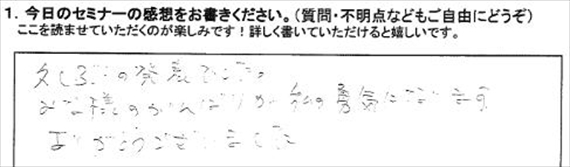 1. 今日のセミナーの感想をお書きください。(質問・不明点などもご自由にどうぞ)
ここを読ませていただくのが楽しみです!詳しく書いていただけると嬉しいです。
久しぶりの発表でした。
みな様のがんばりが私の勇気になります
ありがとうございました